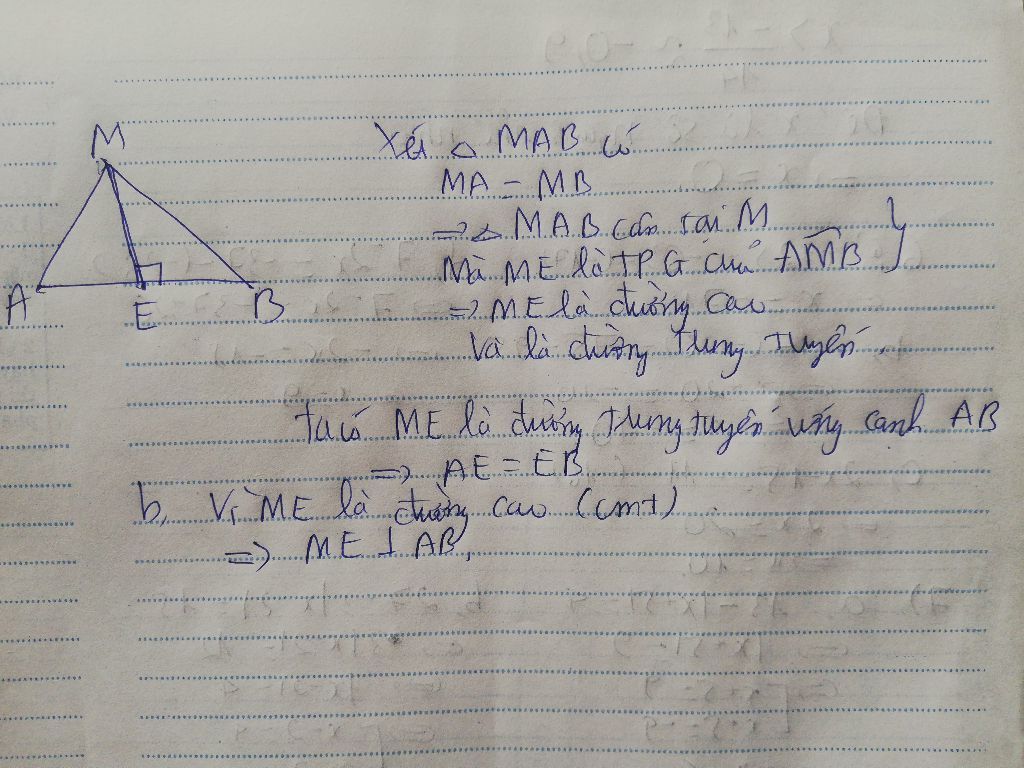 M
A
E
B
Xét △ MAB có
MA = MB
=> △ MAB cân tại M
Mà ME là TPG của AMB }
=> ME là đường cao
Và là đường trung tuyến.
Ta có ME là đường trung tuyến ứng cạnh AB
=> AE = EB
b, Vì ME là đường cao (cmt)
=> ME ⊥ AB,